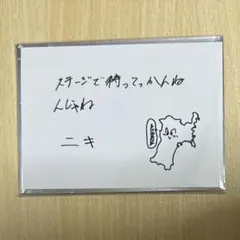 ステージで待ってっかんね
んじゃね
ニキ